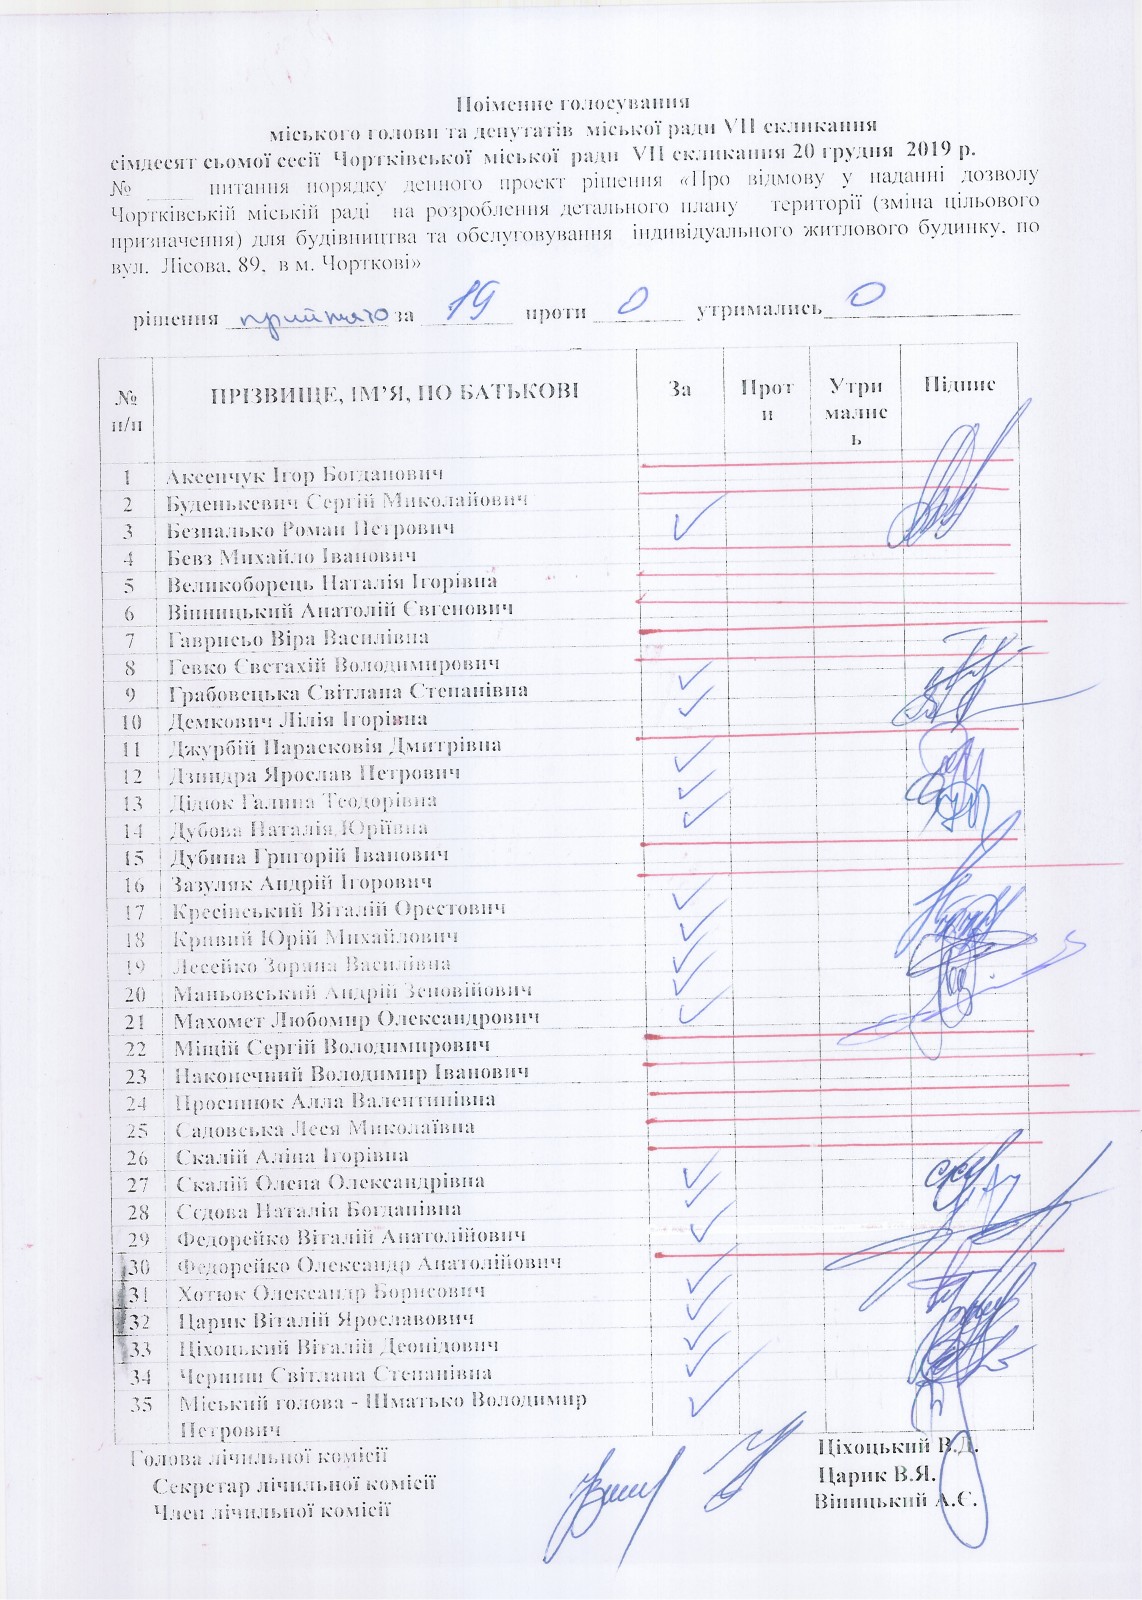 Поіменне голосування
міського голови та депутатів міської ради VII скликання
сімдесят сьомої сесії Чортківської міської ради VII скликання 20 грудня 2019 р.
№ ____ питання порядку денного проект рішення «Про відмову у наданні дозволу
Чортківській міській раді на розроблення детального плану території (зміна цільового
призначення) для будівництва та обслуговування індивідуального житлового будинку, по
вул. Лісова, 89, в м. Чорткові»
рішення прийнято за 19 проти 0 утримались 0
№ п/п ПРІЗВИЩЕ, ІМ’Я, ПО БАТЬКОВІ За Проти Утрималис ь Підпис
1 Аксенчук Ігор Богданович
2 Буденькевич Сергій Миколайович
3 Безпалько Роман Петрович
4 Бевз Михайло Іванович
5 Великоборець Наталія Ігорівна
6 Вінницький Анатолій Євгенович
7 Гаврисьо Віра Василівна
8 Гевко Євстахій Володимирович
9 Грабовецька Світлана Степанівна
10 Демкович Лілія Ігорівна
11 Джурбій Парасковія Дмитрівна
12 Дзиндра Ярослав Петрович
13 Дідюк Галина Теодорівна
14 Дубова Наталія Юріївна
15 Дубина Григорій Іванович
16 Зазуляк Андрій Ігорович
17 Кресінський Віталій Орестович
18 Кривий Юрій Михайлович
19 Лесейко Зоряна Василівна
20 Маньовський Андрій Зеновійович
21 Махомет Любомир Олександрович
22 Міщій Сергій Володимирович
23 Наконечний Володимир Іванович
24 Просинюк Алла Валентинівна
25 Садовська Леся Миколаївна
26 Скалій Аліна Ігорівна
27 Скалій Олена Олександрівна
28 Сєдова Наталія Богданівна
29 Федорейко Віталій Анатолійович
30 Федорейко Олександр Анатолійович
31 Хотюк Олександр Борисович
32 Царик Віталій Ярославович
33 Ціхоцький Віталій Деонідович
34 Черниш Світлана Степанівна
35 Міський голова - Шматько Володимир
Петрович
Голова лічильної комісії Ціхоцький В.Д.
Секретар лічильної комісії Царик В.Я.
Член лічильної комісії Вінницький А.Є.